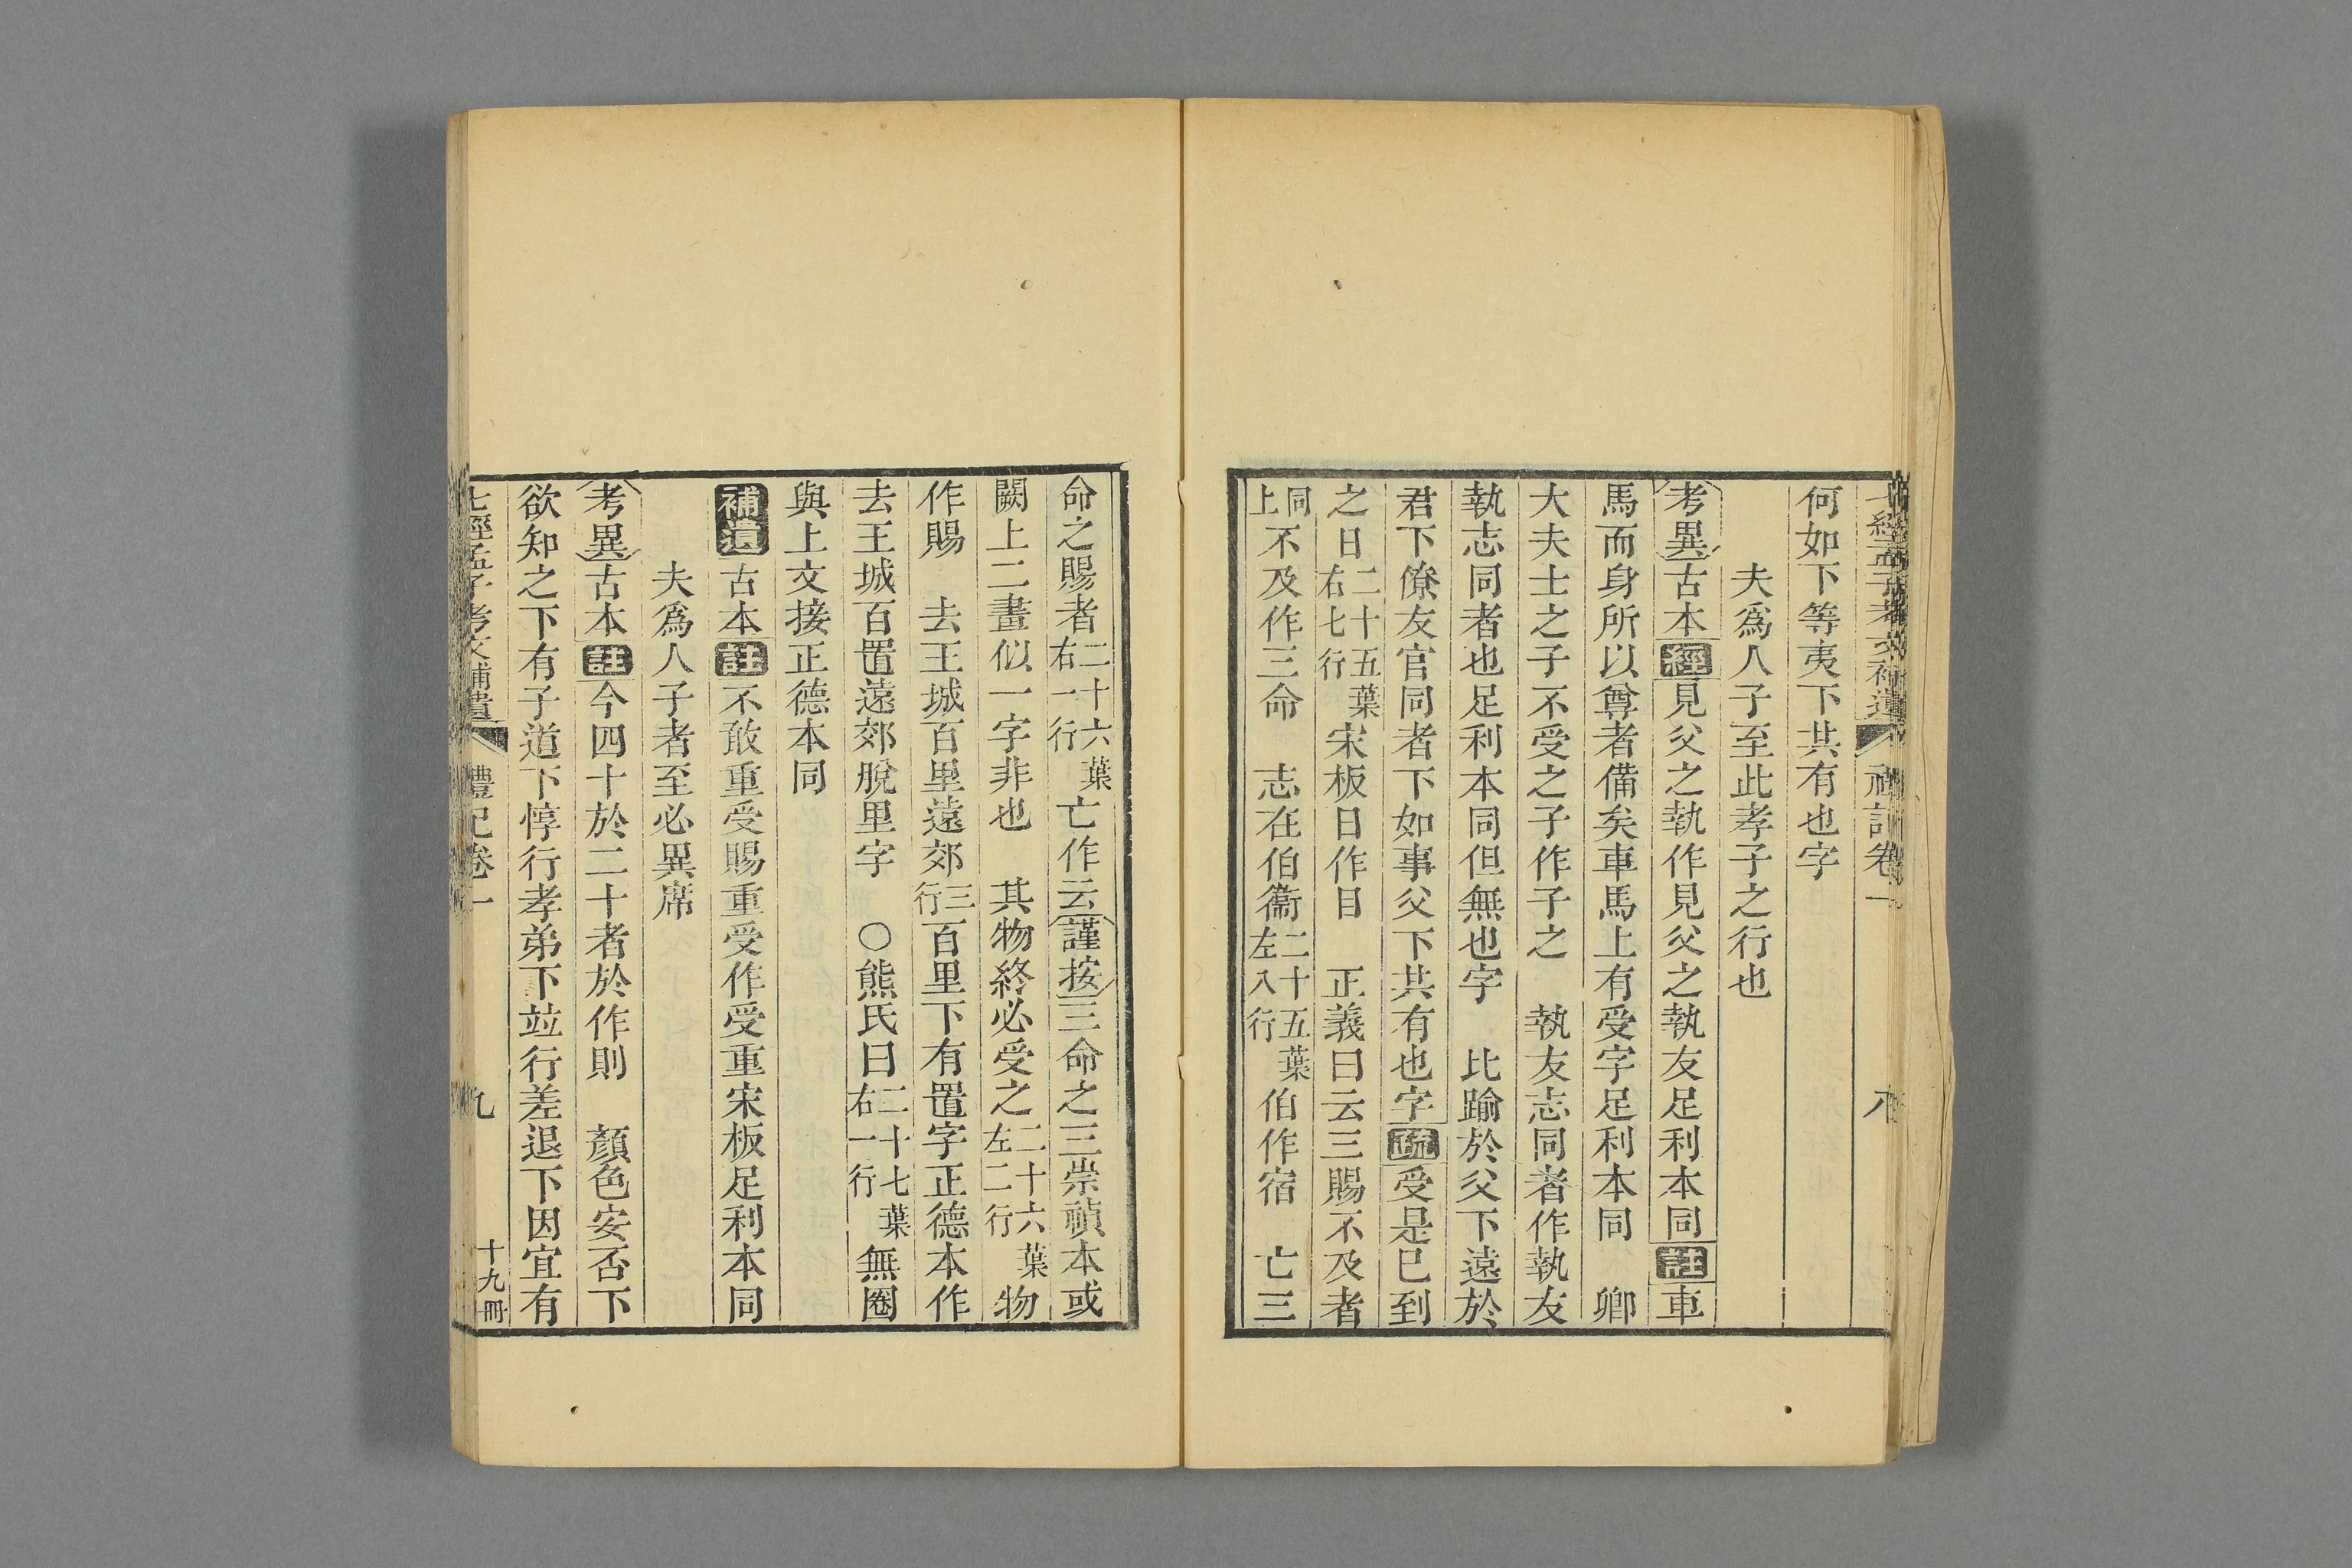 七經孟子考文補遺 禮記卷一 八
何如下等夷下共有也字
夫爲人子至此孝子之行也
考異古本經見父之執作見父之執友足利本同註車
馬而身所以尊者備矣車馬上有受字足利本同　卿
大夫士之子不受之子作子之　執友志同者作執友
執志同者也足利本同但無也字　比踰於父下遠於
君下僚友官同者下如事父下共有也字疏受是已到
之日二十五葉右七行宋板日作目　正義曰云三賜不及者
同上不及作三命　志在伯衞二十五葉左八行伯作宿　亡三
命之賜者二十六葉右一行亡作云謹按三命之三崇禎本或
闕上二畫似一字非也　其物終必受之二十六葉左二行物
作賜　去王城百里遠郊三行百里下有置字正德本作
去王城百置遠郊脫里字　○熊氏曰二十七葉右一行無圈
與上文接正德本同
補遺古本註不敢重受賜重受作受重宋板足利本同
夫爲人子者至必異席
考異古本註今四十於二十者於作則　顏色安否下
欲知之下有子道下惇行孝弟下竝行差退下因宜有
七經孟子考文補遺 禮記卷一 九 十九冊